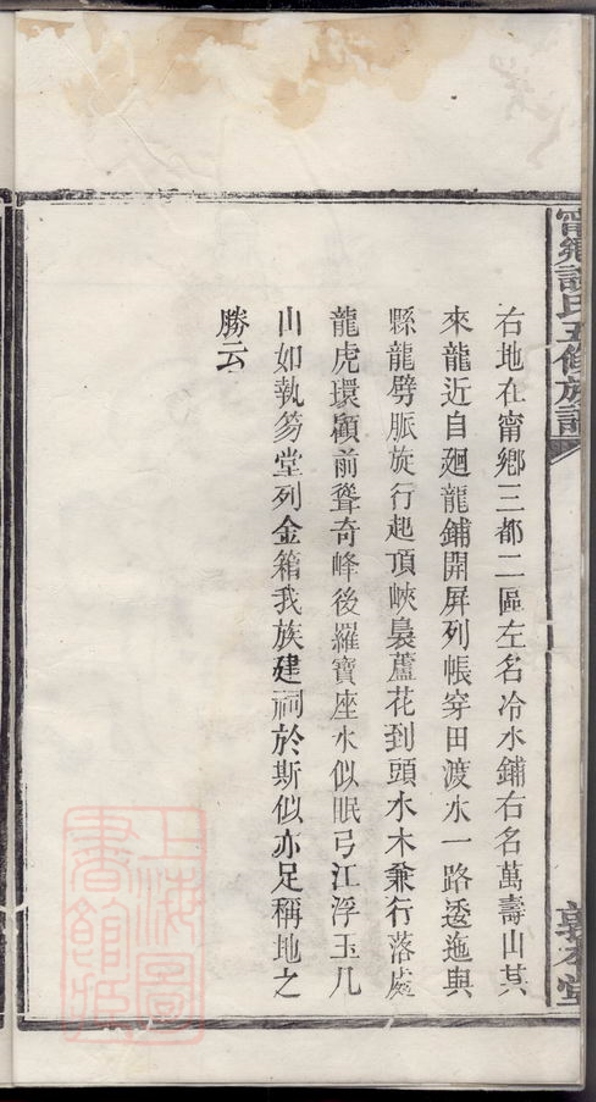 甯鄉談氏五修族譜
敦本堂
右地在甯鄉三都二區左名冷水鋪右名萬壽山其
來龍近自廻龍鋪開屏列帳穿田渡水一路逶迤與
縣龍劈脈旋行起頂峽裊蘆花到頭水木兼行落處
龍虎環顧前聳奇峰後羅寶座水似眠弓江浮玉几
山如執笏堂列金箱我族建祠於斯似亦足稱地之
勝云
上海圖書館藏